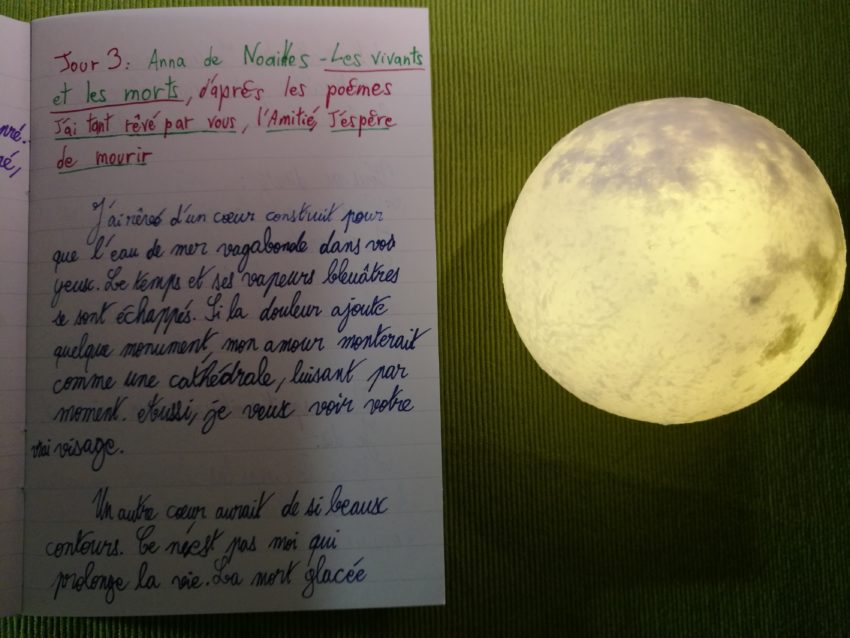 Jour 3: Anna de Noailles - Les vivants
et les morts, d'après les poèmes
J'ai tant rêvé par vous, l'Amitié, J'espère
de mourir
J'ai rêvé d'un cœur construit pour
que l'eau de mer vagabonde dans vos
yeux. Le temps et ses vapeurs bleuâtres
se sont échappés. Si la douleur ajoute
quelque monument, mon amour monterait
comme une cathédrale, luisant par
moment. Aussi, je veux voir votre
vrai visage.
Un autre cœur aurait de si beaux
contours. Ce n'est pas moi qui
prolonge la vie. La mort glacée